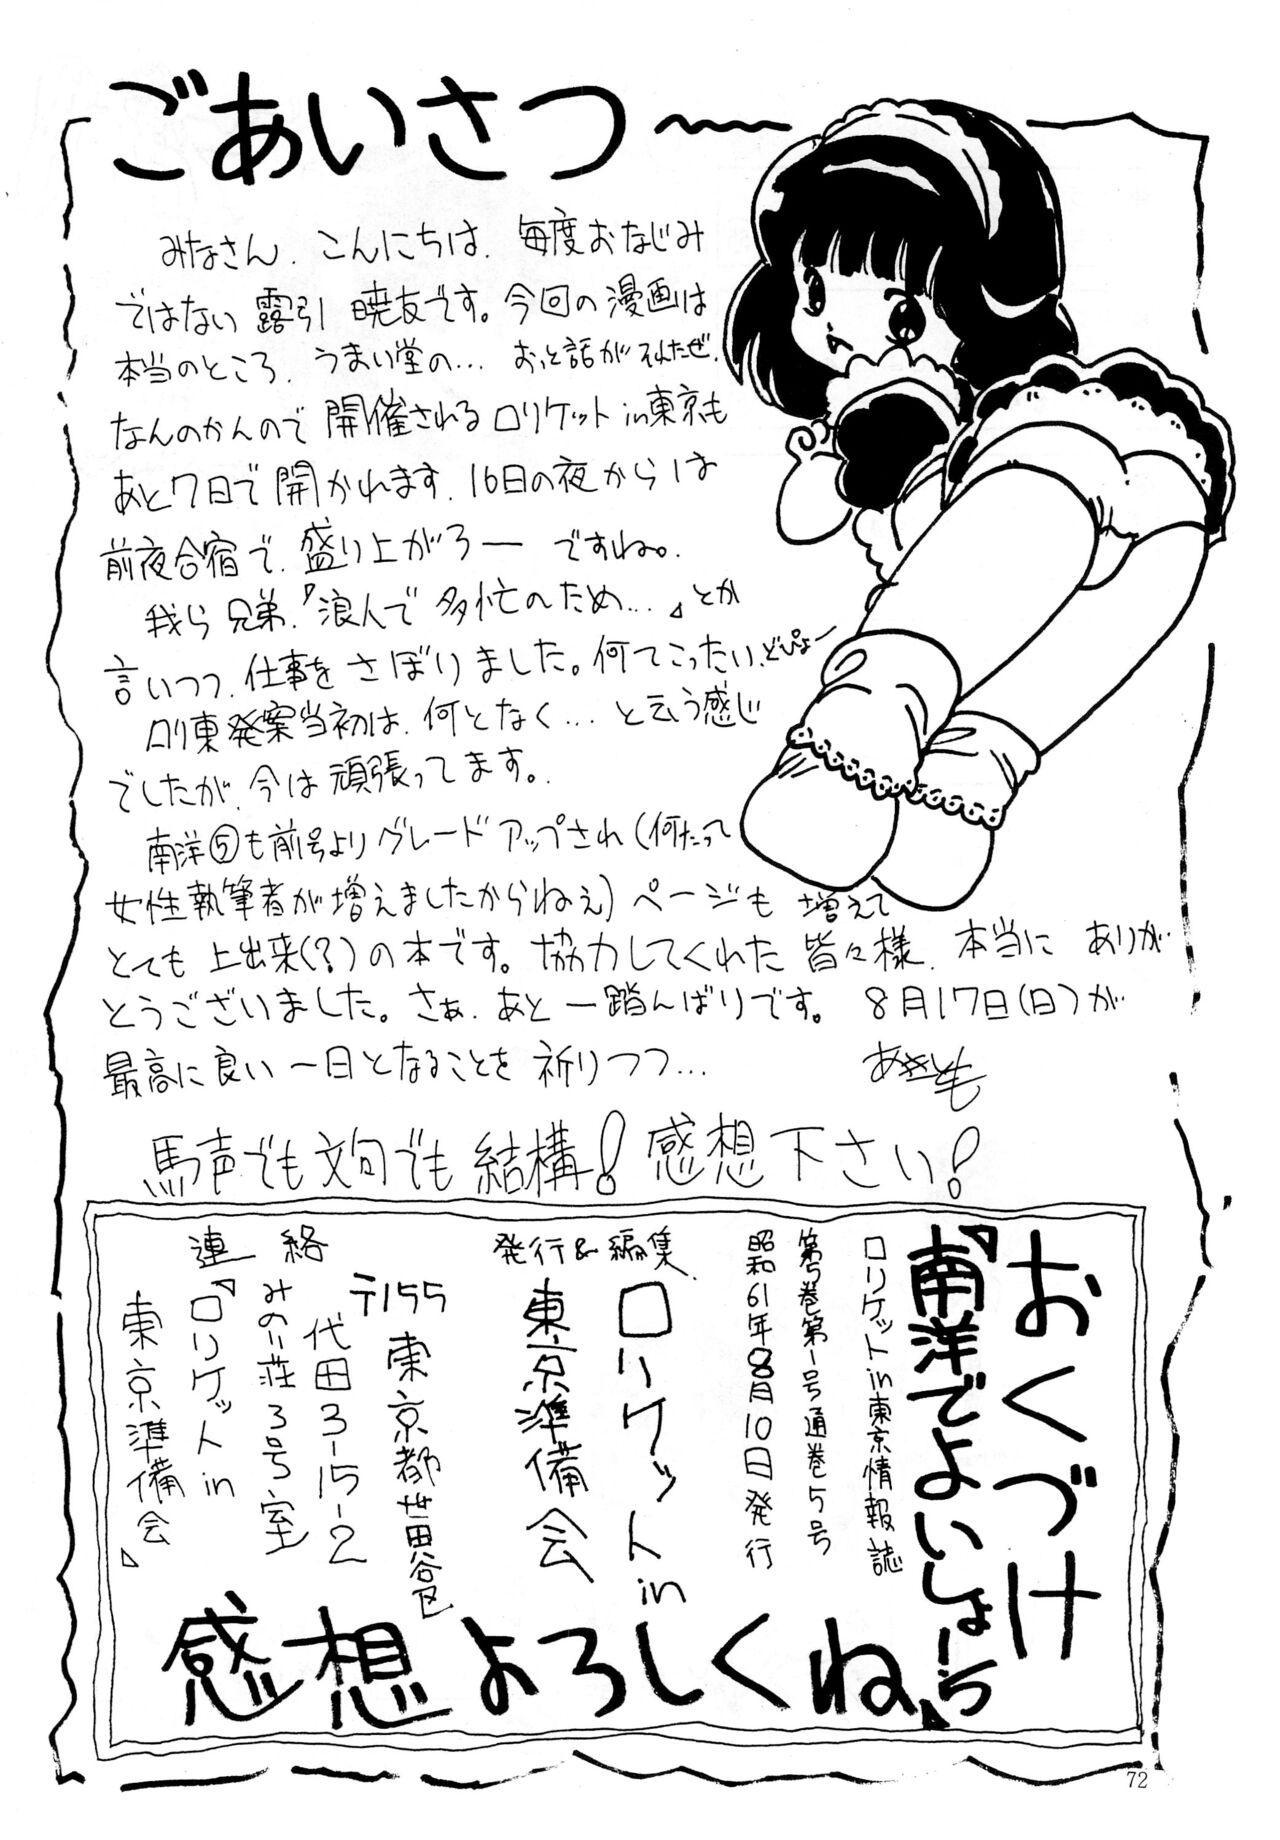 ごあいさつ〜
みなさん、こんにちは、毎度おなじみ
ではない露引 暁友です。今回の漫画は
本当のところ、うまい堂の… おっと話がそれたぜ、
なんのかんので開催されるロリケットin東京も
あと7日で開かれます。16日の夜からは
前夜合宿で、盛り上がろー ですね。
我ら兄弟、『浪人で多忙のため…』とか
言いつつ、仕事をさぼりました。何てこったい、どぴょー
ロリ東発案当初は、何となく…と云う感じ
でしたが、今は頑張ってます。
南洋⑤も前号よりグレードアップされ(何たって
女性執筆者が増えましたからねぇ)ページも増えて
とても上出来(?)の本です。協力してくれた皆々様、本当にありが
とうございました。さぁ、あと一踏んばりです。8月17日(日)が
最高に良い一日となることを祈りつつ…
あきとも
馬声でも文句でも結構!感想下さい!
おくづけ
『南洋でよいしょ!ら』
ロリケットin東京情報誌
第5巻第1号通巻5号
昭和61年8月10日発行
発行&編集
ロリケットin
東京準備会
連絡
〒155 東京都世田谷区
代田3-15-2
みのり荘3号室
『ロリケットin
東京準備会』
感想よろしくね
72